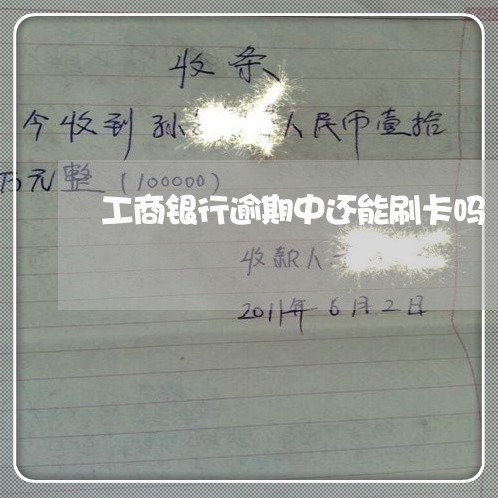 收条
今收到孙 人民币壹拾
万元整(100000)
工商银行逾期中还能刷卡吗
收款人
2011年6月2日